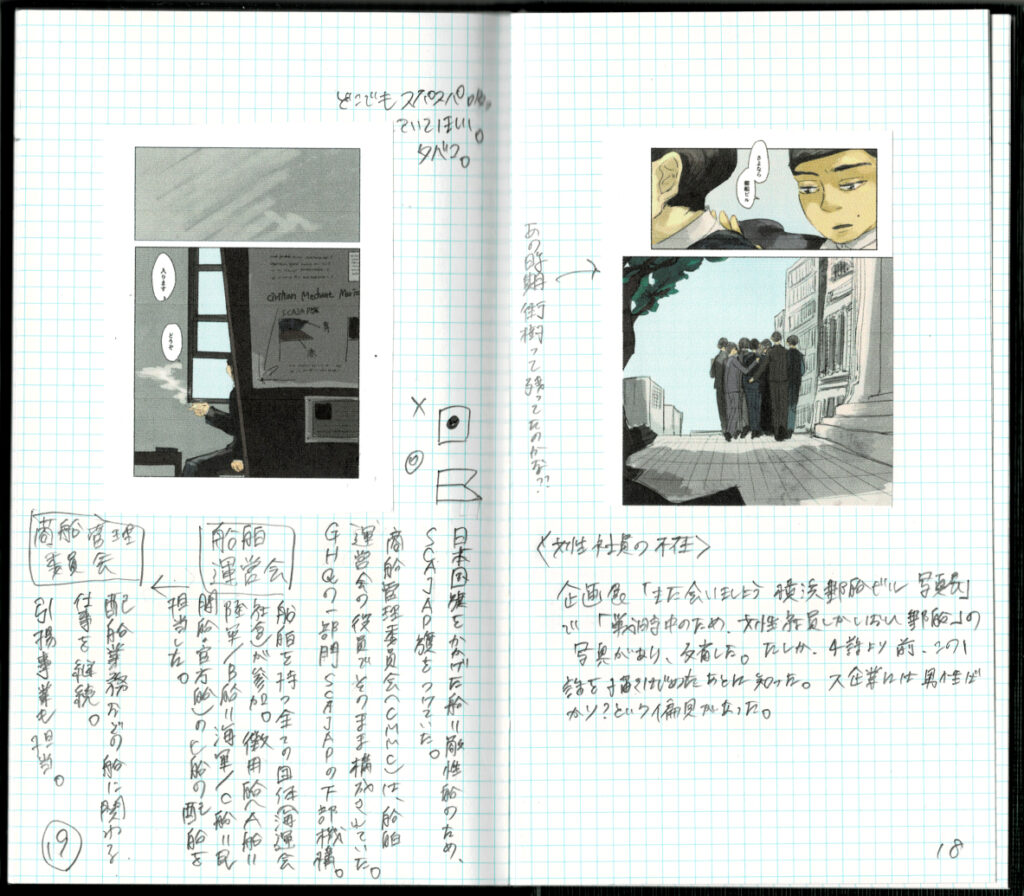 さよなら
郵船ビル
あの時期 街樹って残ってたのかな??
〈女性社員の不在〉
企画展「また会いましょう 横浜郵船ビル 写真展」
で「戦時中のため、女性社員しかいない郵船」の
写真があり、反省した。たしか、4話より前、この1
話を描きはじめたあとに知った。大企業には男性ば
かり?という偏見があった。
18
どこでもスパスパ
ていてほしい。
タバコ。
入ります
どうぞ
Merchant
SCAJAP旗
青
赤
日本国旗をかかげた船=敵性船のため、
SCAJAP旗をつけていた。
商船管理委員会(CMMC)は、船舶
運営会の役員でそのまま構成されていた。
GHQの一部門SCAJAPの下部機構。
船舶
運営会
船舶を持つ全ての団体(海運会
社など)が参加。徴用船(A船=
陸軍/B船=海軍/C船=民
間船・官方船)のC船の配船を
担当した。
商船管理
委員会
配船業務などの船に関わる
仕事を継続。
引揚事業も担当。
19